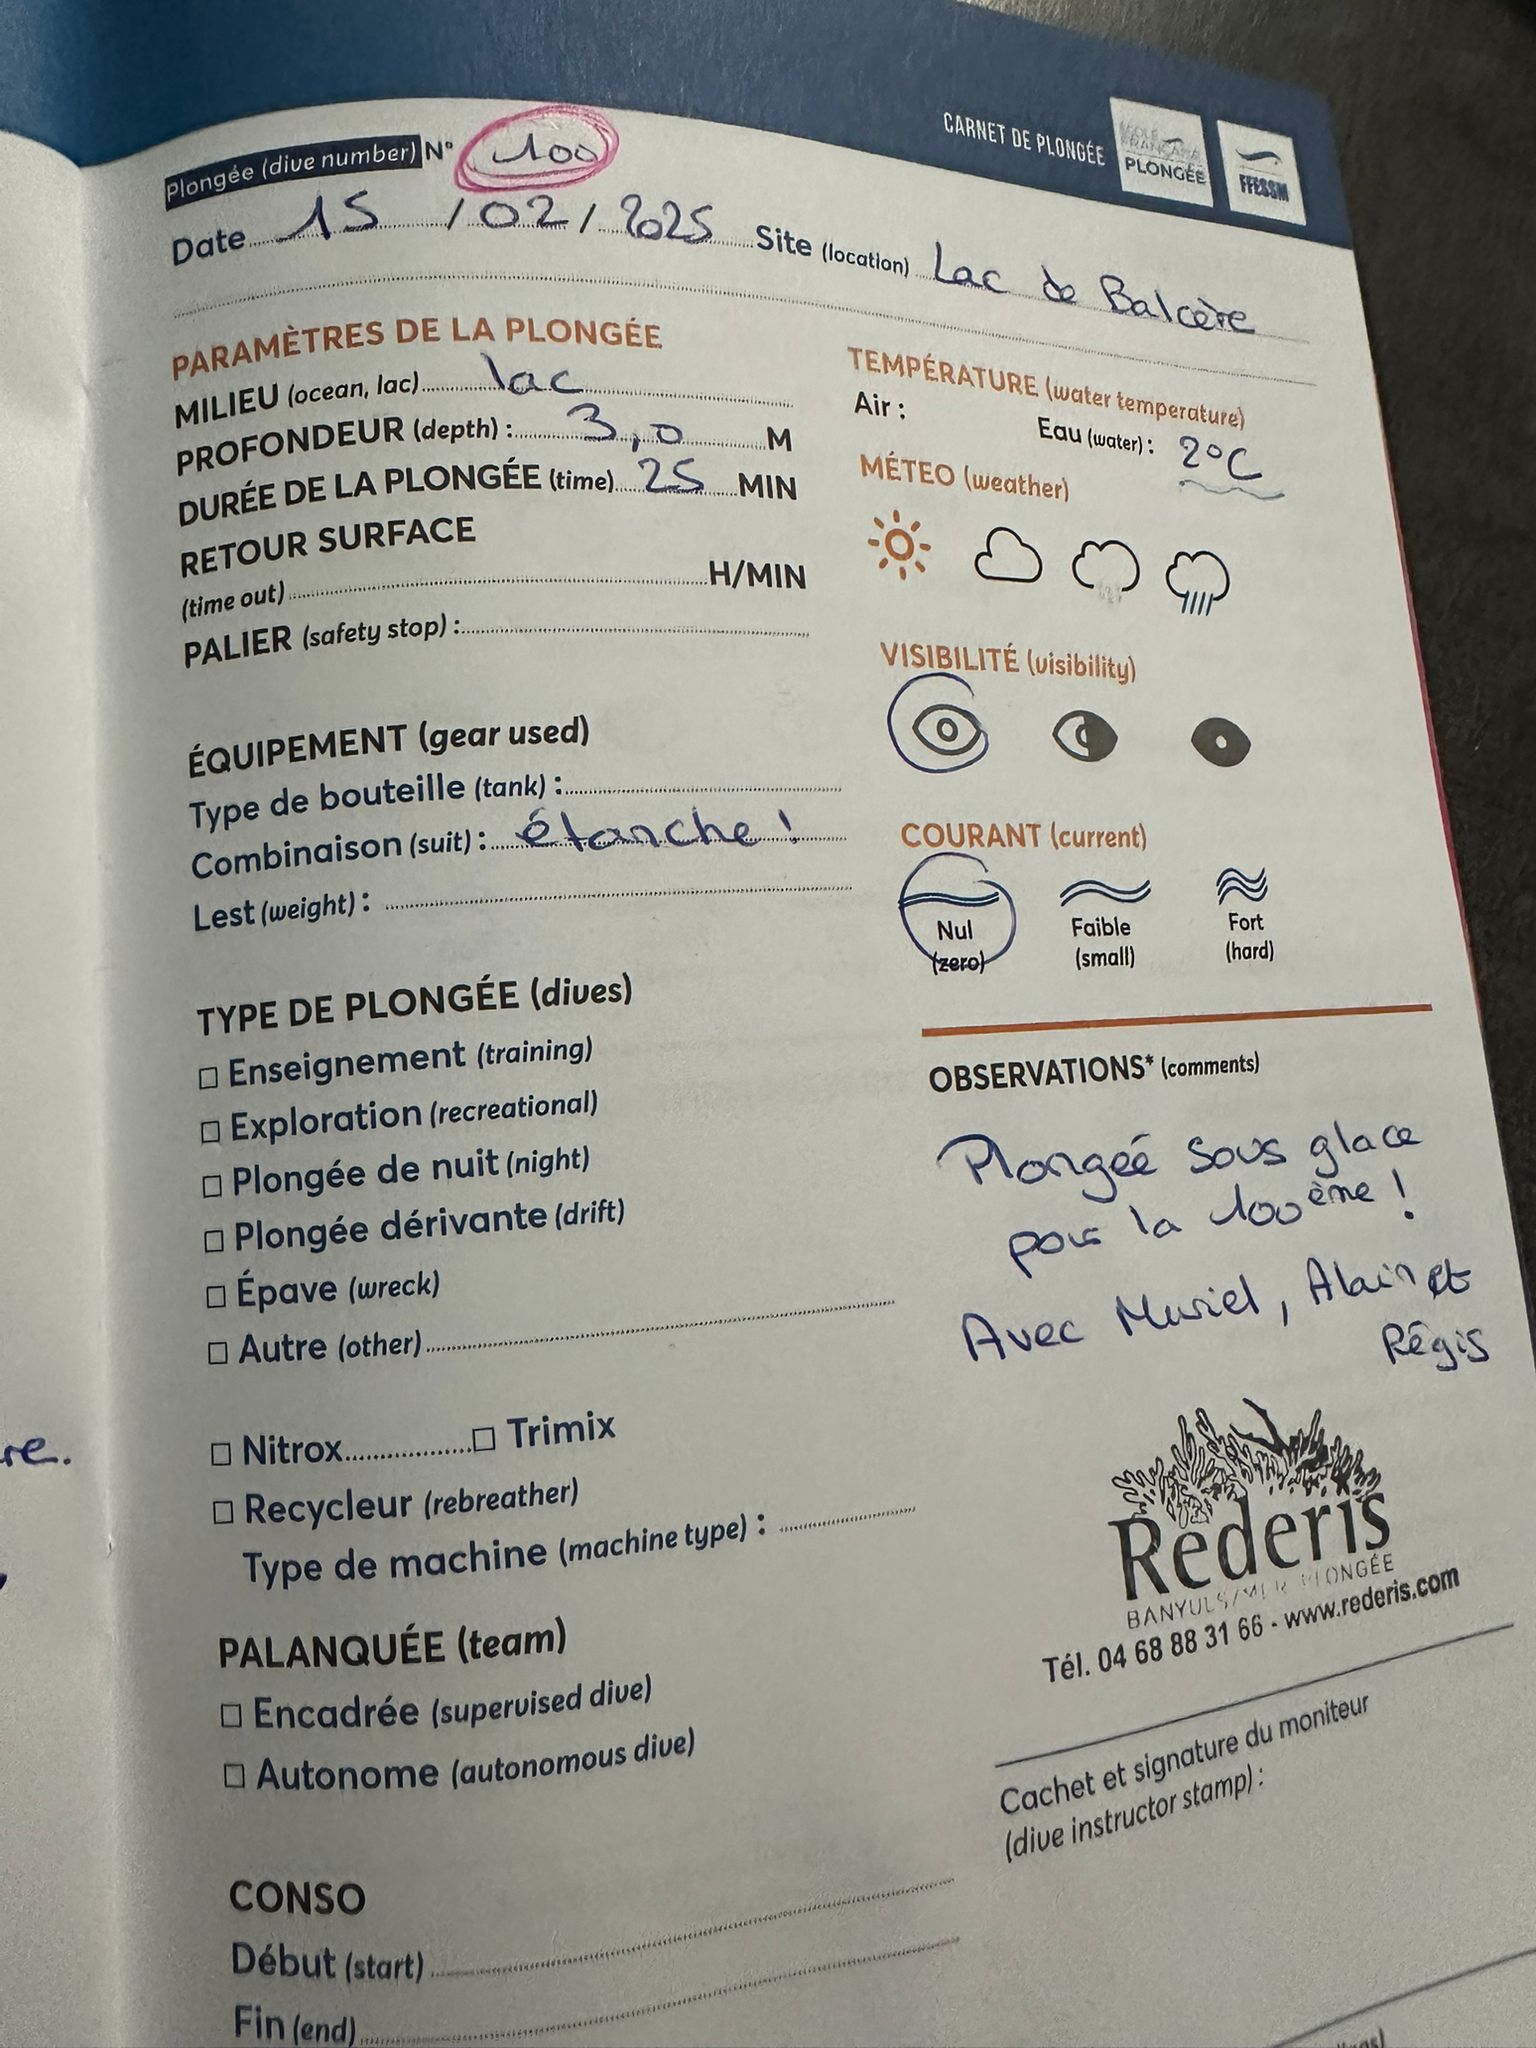 CARNET DE PLONGÉE
ÉCOLE FRANÇAISE PLONGÉE
FFESSM
Plongée (dive number) N° 100
Date 15 / 02 / 2025 Site (location) Lac de Balcère
PARAMÈTRES DE LA PLONGÉE
MILIEU (ocean, lac) lac
PROFONDEUR (depth) : 3,0 M
DURÉE DE LA PLONGÉE (time) 25 MIN
RETOUR SURFACE
(time out) H/MIN
PALIER (safety stop) :
ÉQUIPEMENT (gear used)
Type de bouteille (tank) :
Combinaison (suit) : étanche !
Lest (weight) :
TYPE DE PLONGÉE (dives)
Enseignement (training)
Exploration (recreational)
Plongée de nuit (night)
Plongée dérivante (drift)
Épave (wreck)
Autre (other)
Nitrox Trimix
Recycleur (rebreather)
Type de machine (machine type) :
PALANQUÉE (team)
Encadrée (supervised dive)
Autonome (autonomous dive)
CONSO
Début (start)
Fin (end)
TEMPÉRATURE (water temperature)
Air : Eau (water) : 2°C
MÉTEO (weather)
VISIBILITÉ (visibility)
COURANT (current)
Nul Faible Fort
(zero) (small) (hard)
OBSERVATIONS* (comments)
Plongée sous glace
pour la 100ème !
Avec Muriel, Alain et
Régis
Rederis
BANYULS/MER PLONGÉE
Tél. 04 68 88 31 66 - www.rederis.com
Cachet et signature du moniteur
(dive instructor stamp) :